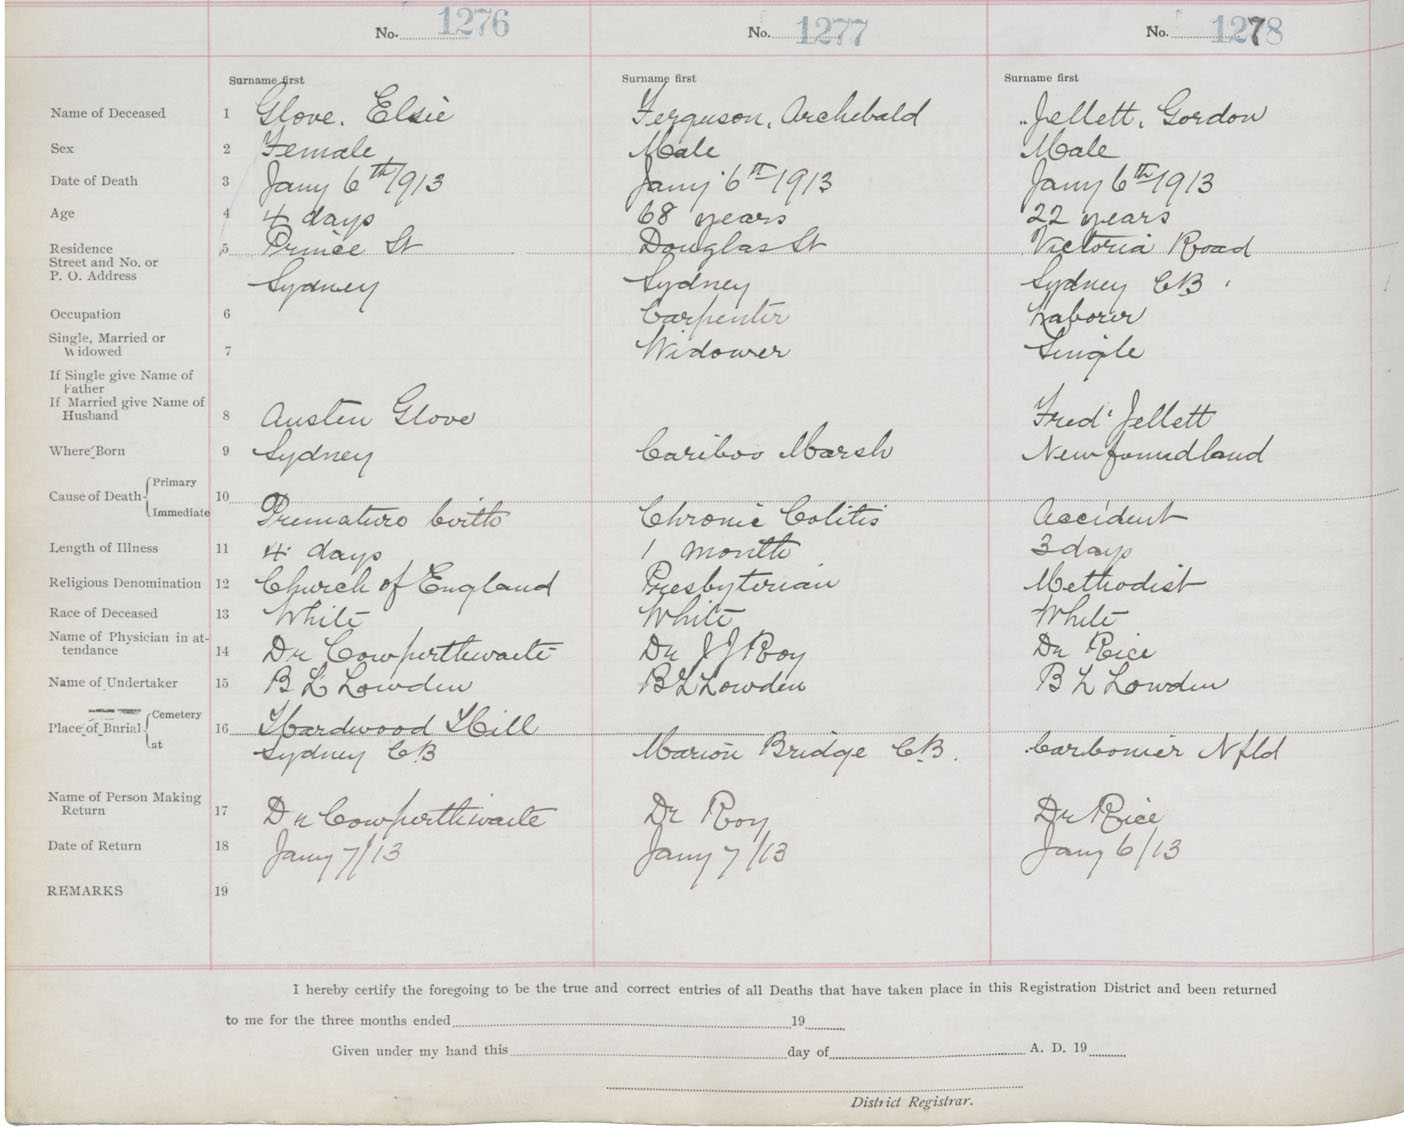 No. 1276 No. 1277 No. 1278
Surname first Surname first Surname first
Name of Deceased 1 Glove, Elsie Ferguson, Archebald Jellett, Gordon
Sex 2 Female Male Male
Date of Death 3 Jany 6th 1913 Jany 6th 1913 Jany 6th 1913
Age 4 4 days 68 years 22 years
Residence 5 Prince St Douglas St Victoria Road
Street and No. or
P. O. Address Sydney Sydney Sydney CB
Occupation 6 Carpenter Laborer
Single, Married or
Widowed 7 Widower Single
If Single give Name of
Father
If Married give Name of
Husband 8 Austen Glove Fred Jellett
Where Born 9 Sydney Cariboo Marsh Newfoundland
Cause of Death { Primary 10
Immediate Premature birth Chronic Colitis Accident
Length of Illness 11 4 days 1 month 3 days
Religious Denomination 12 Church of England Presbyterian Methodist
Race of Deceased 13 White White White
Name of Physician in at-
tendance 14 Dr Cowperthwaite Dr J J Roy Dr Rice
Name of Undertaker 15 B L Lowden B L Lowden B L Lowden
Place of Burial { Cemetery 16 Hardwood Hill
at Sydney C.B Marion Bridge C.B. Carbonier Nfld
Name of Person Making
Return 17 Dr Cowperthwaite Dr Roy Dr Rice
Date of Return 18 Jany 7/13 Jany 7/13 Jany 6/13
REMARKS 19
I hereby certify the foregoing to be the true and correct entries of all Deaths that have taken place in this Registration District and been returned
to me for the three months ended 19
Given under my hand this day of A. D. 19
District Registrar.